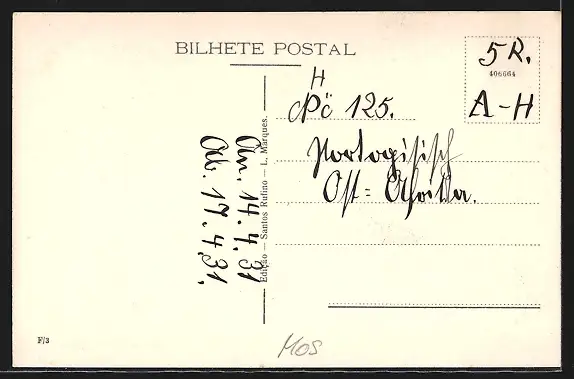 BILHETE POSTAL
5 R.
406664
A-H
H
Pč 125.
Portogisisch
Ost = Afrika.
An. 14. 4, 31
Ab. 17. 4, 31,
Edição — Santos Rufino — L. Marques.
F/3
MOS